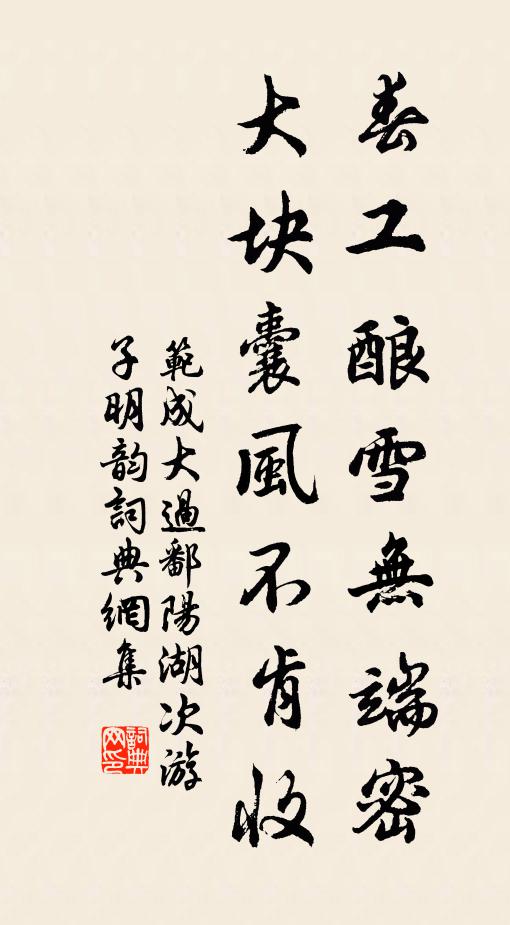 春工酿雪無端密
大块囊風不肯收
範成大過鄱陽湖次游
子明韵詞典網集
詞典
网印